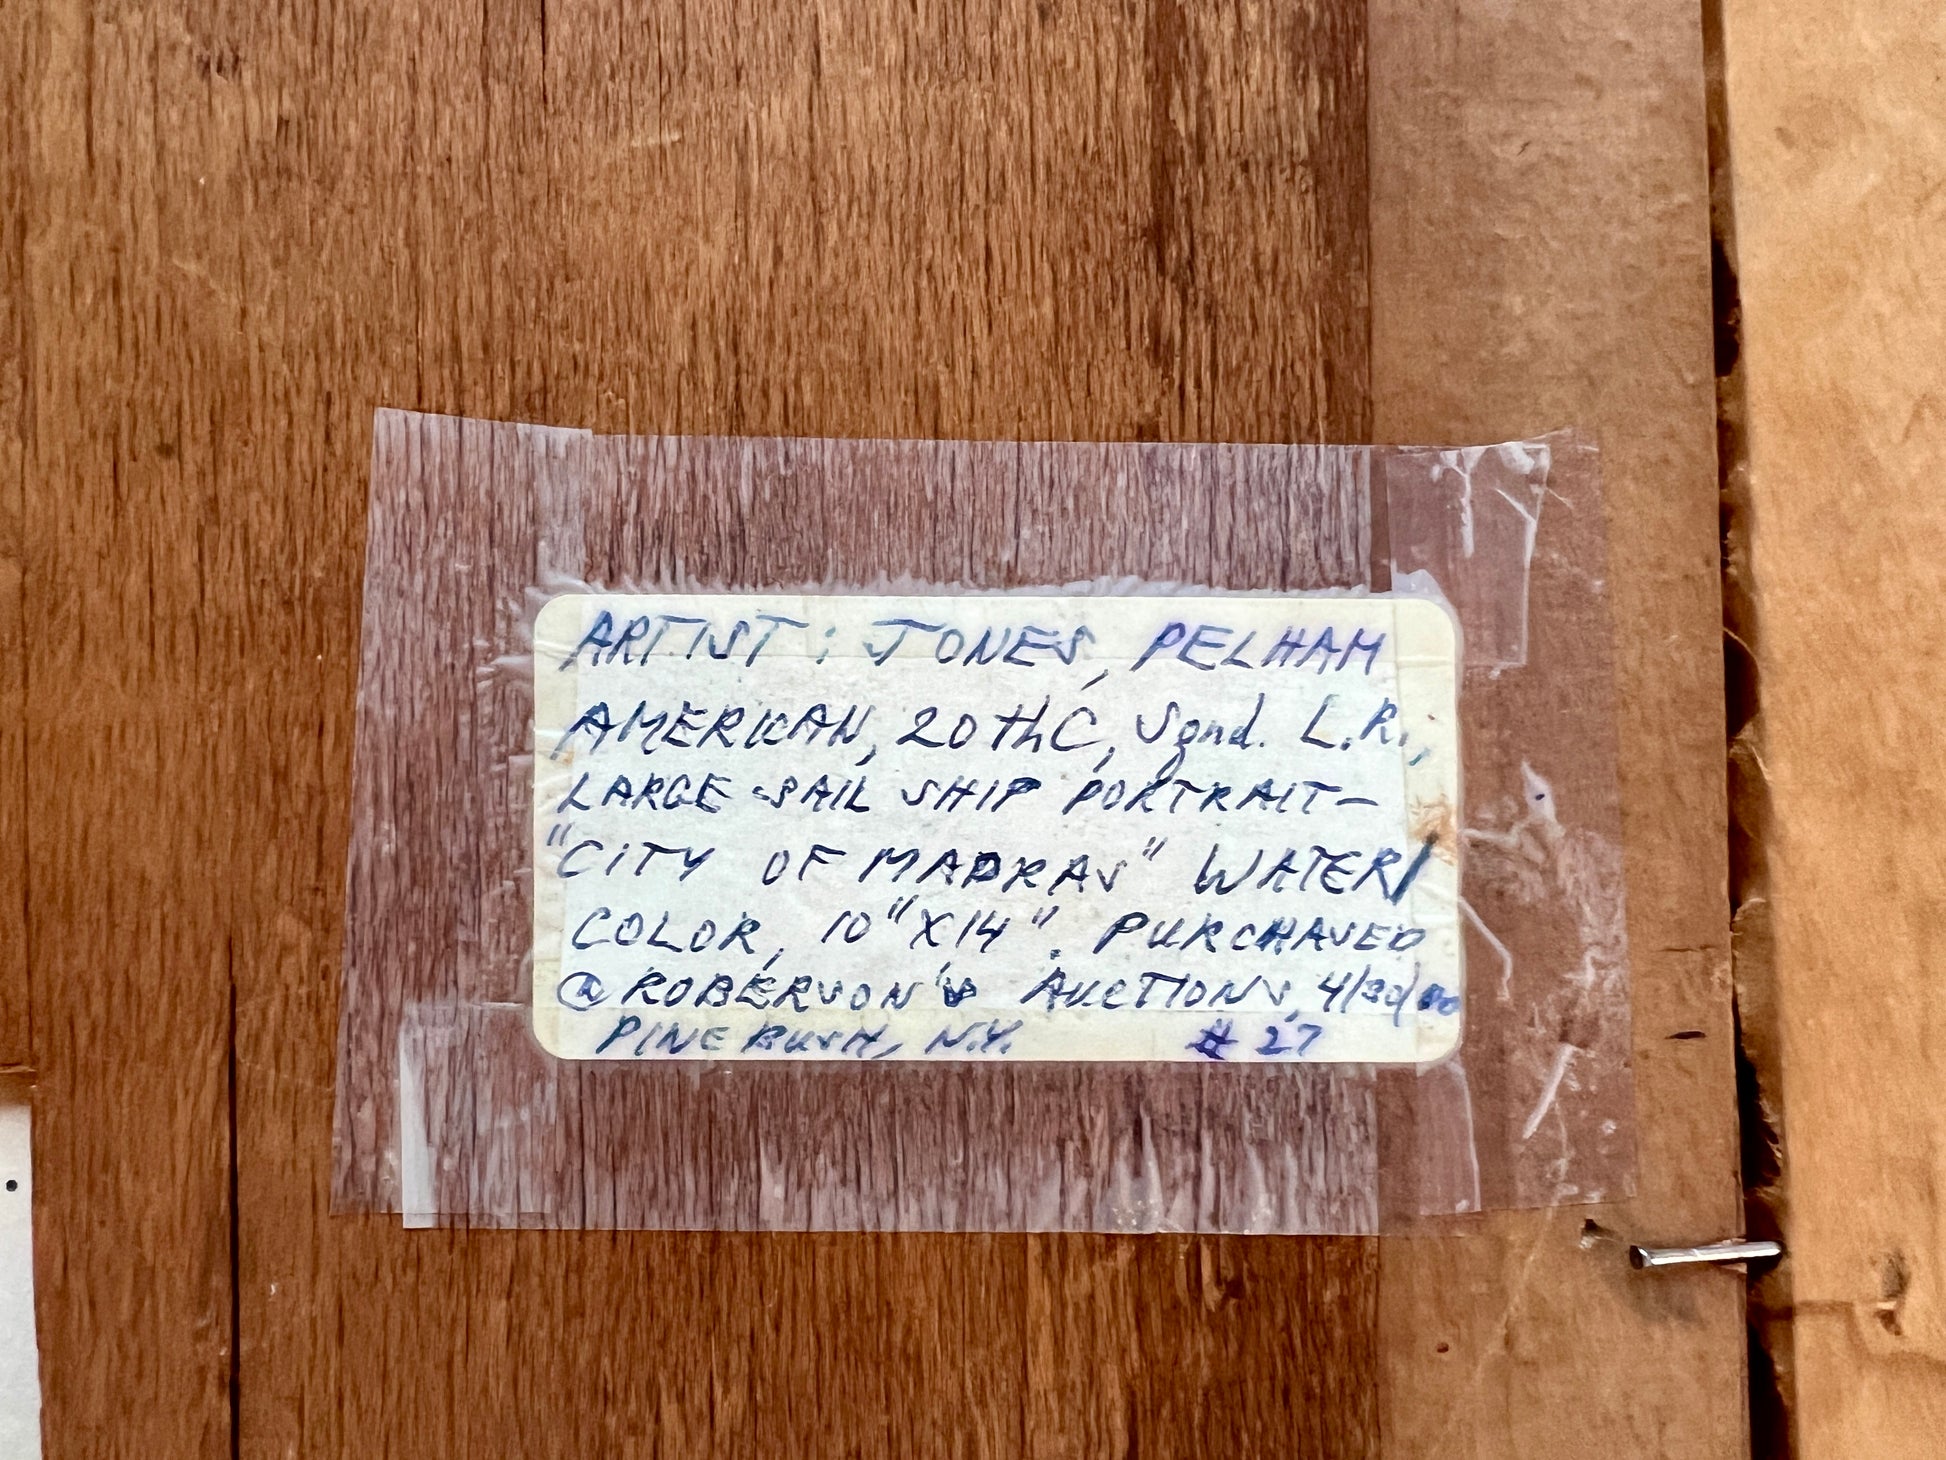 ARTIST: JONES, PELHAM
AMERICAN, 20thC, Sgnd. L.R.,
LARGE SAIL SHIP PORTRAIT-
"CITY OF MADRAS" WATER/
COLOR, 10"X14". PURCHASED
@ ROBERSON'S AUCTIONS, 4/30/00
PINE BUSH, N.Y. # 27